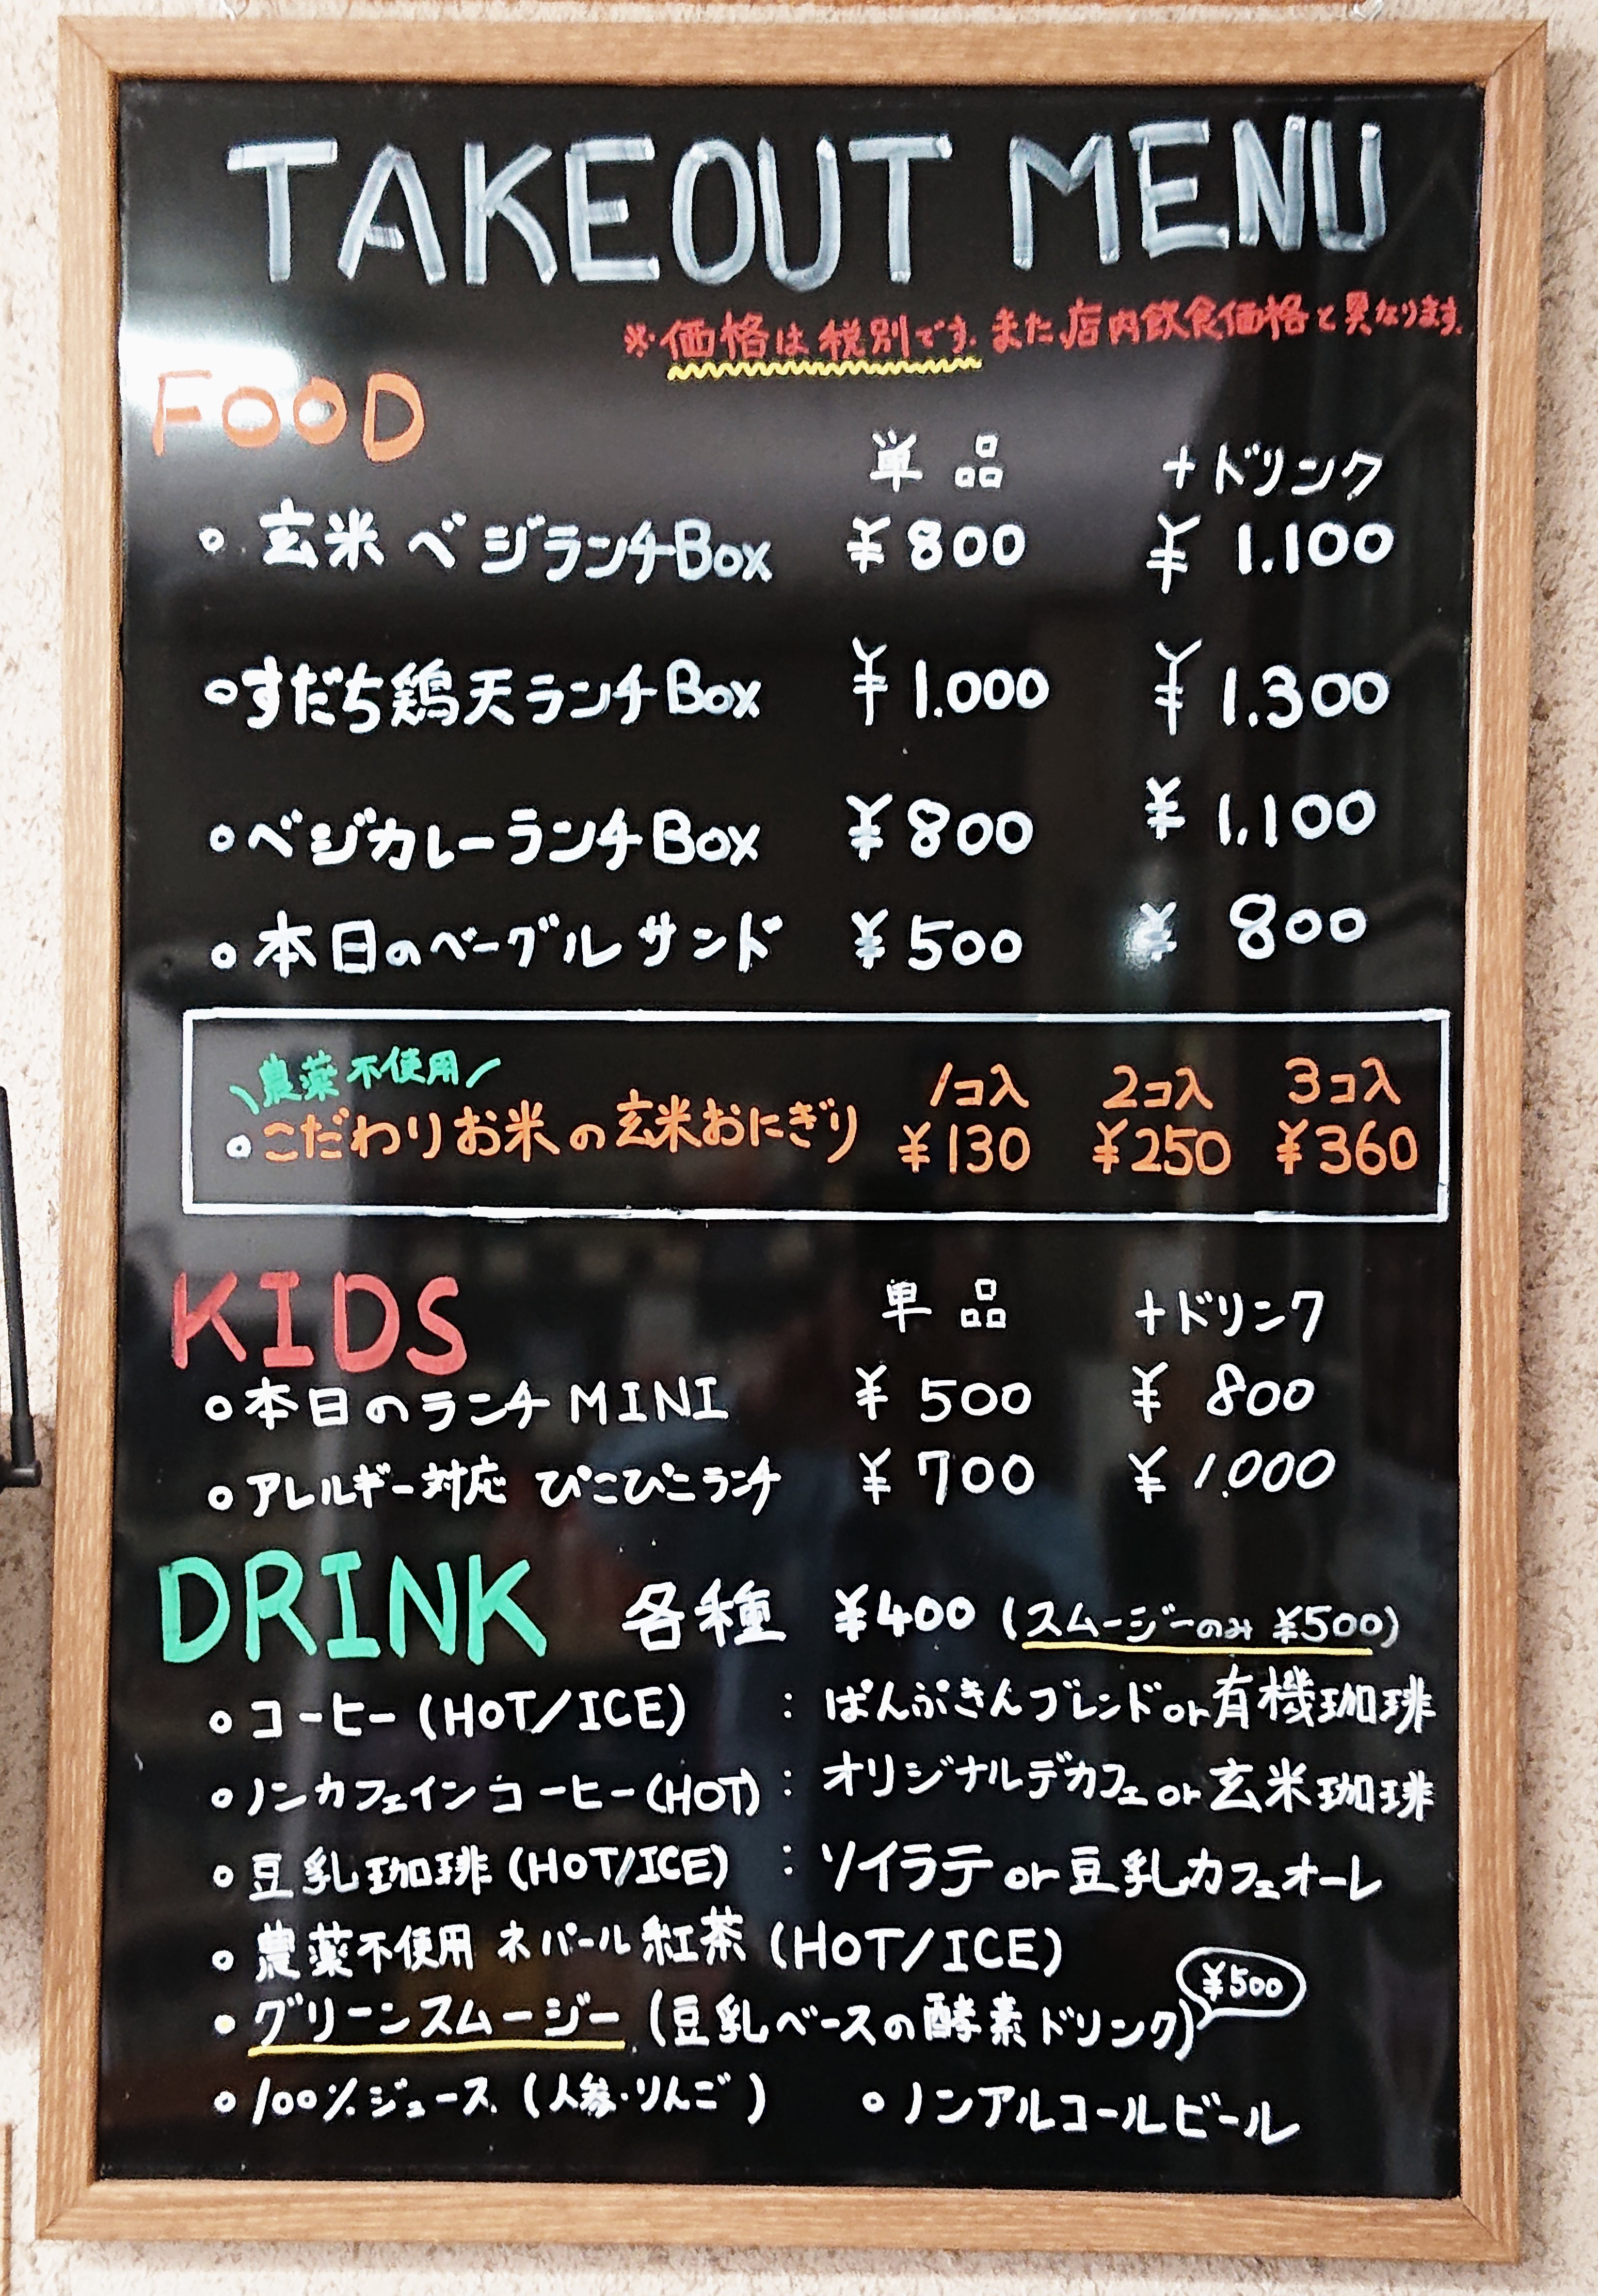 TAKEOUT MENU
※価格は税別です。また店内飲食価格と異なります。
FOOD
単品 +ドリンク
○ 玄米ベジランチBox ¥800 ¥1.100
○すだち鶏天ランチBox ¥1.000 ¥1.300
○ベジカレーランチBox ¥800 ¥1.100
○本日のベーグルサンド ¥500 ¥800
\農薬不使用/ 1コ入 2コ入 3コ入
○こだわりお米の玄米おにぎり ¥130 ¥250 ¥360
KIDS 単品 +ドリンク
○本日のランチMINI ¥500 ¥800
○アレルギー対応 ぴこぴこランチ ¥700 ¥1.000
DRINK 各種 ¥400 (スムージーのみ ¥500)
○コーヒー(HOT/ICE) : ぱんぷきんブレンドor有機珈琲
○ノンカフェインコーヒー(HOT) : オリジナルデカフェor玄米珈琲
○豆乳珈琲(HOT/ICE) : ソイラテor豆乳カフェオーレ
○農薬不使用 ネパール紅茶(HOT/ICE)
○グリーンスムージー(豆乳ベースの酵素ドリンク) ¥500
○100%ジュース(人参・りんご) ○ノンアルコールビール